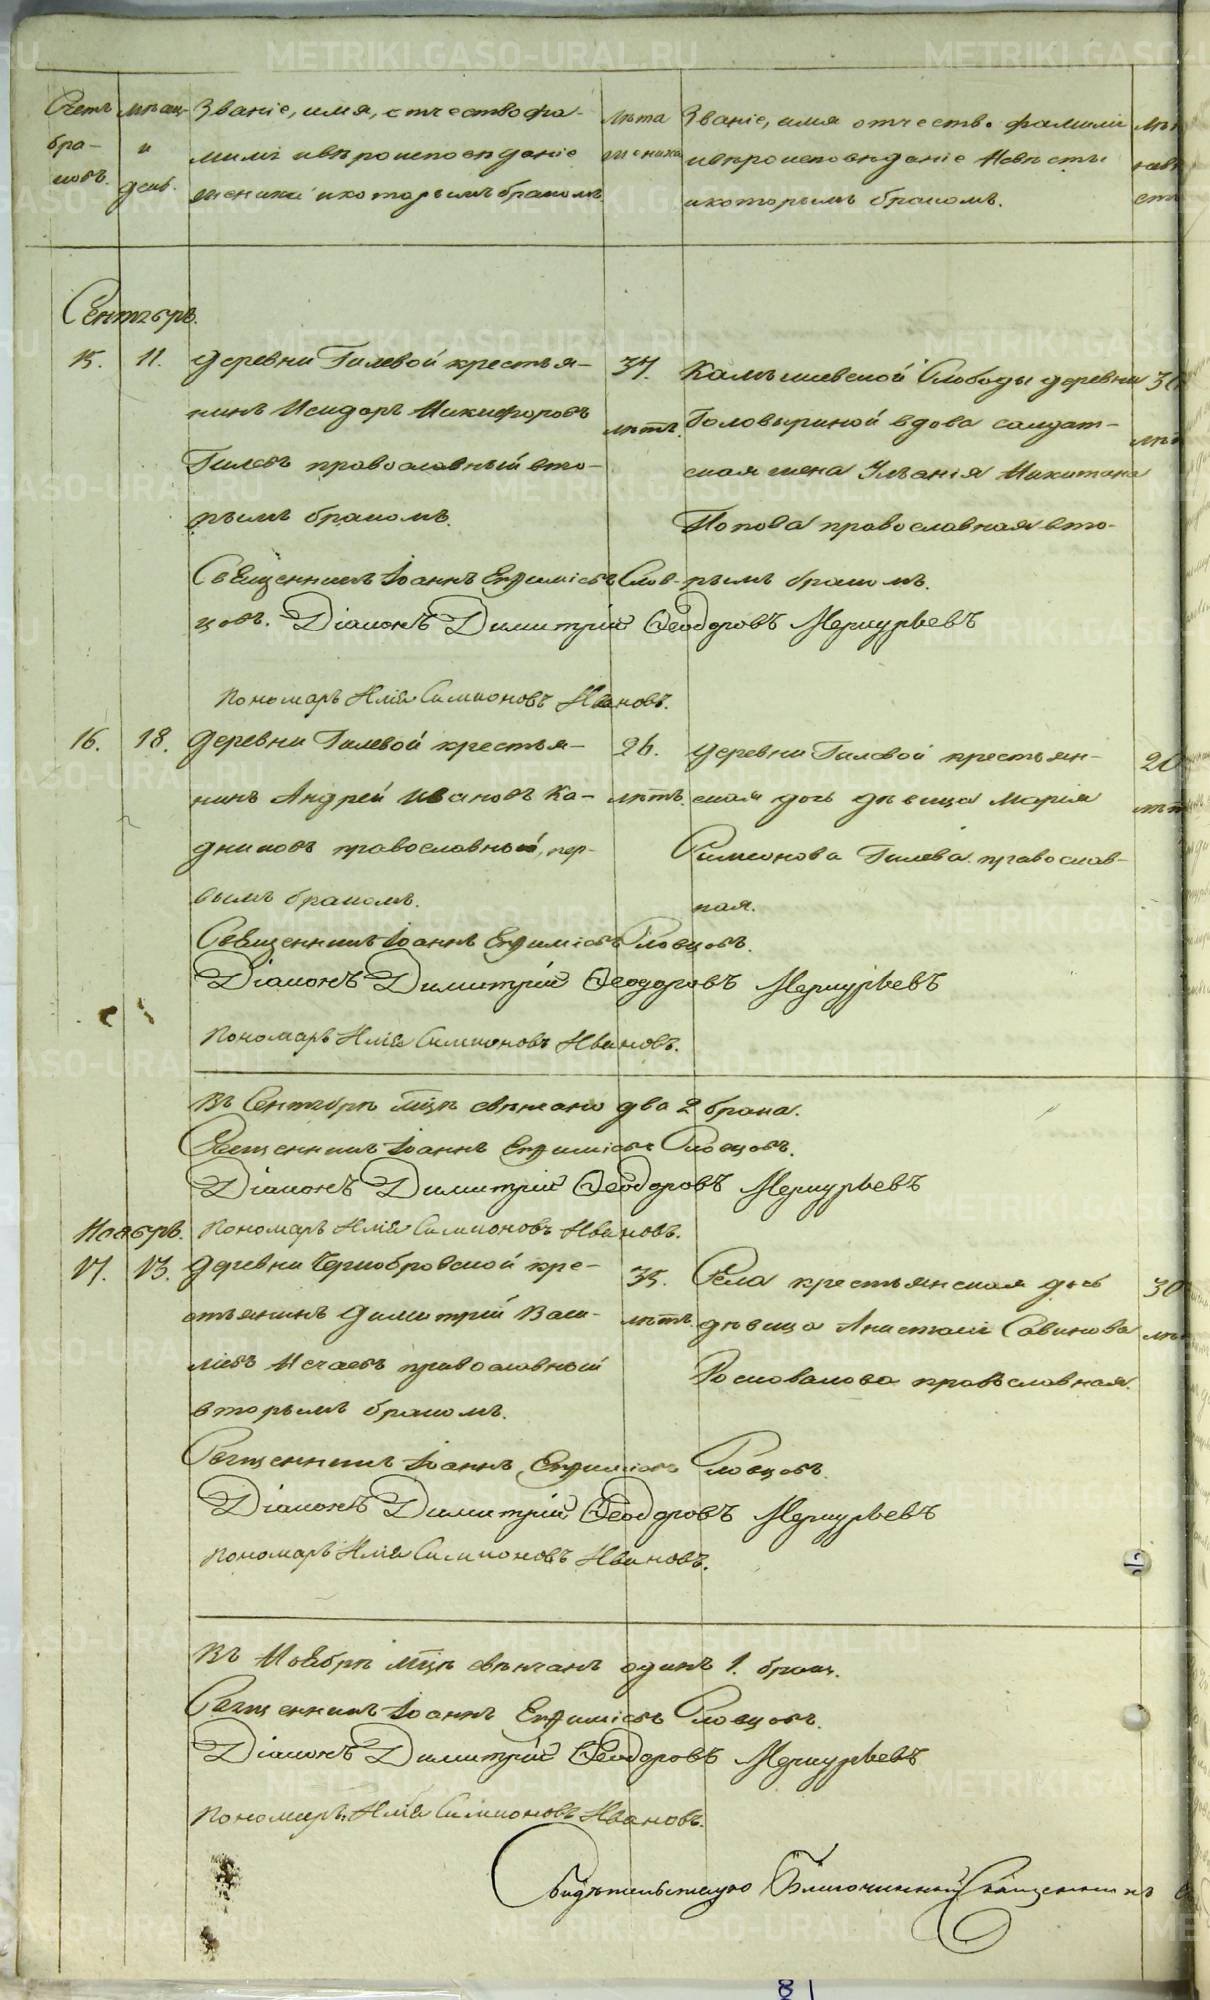 Счетъ бра-ковъ.
мѣсяцъ и день.
Званіе, имя, отчество фа-
милія и вѣроисповѣданіе
жениха и которымъ бракомъ.
лѣта
жениха
Званіе, имя отчество фамилія
и вѣроисповѣданіе Невѣсты
и которымъ бракомъ.
Сентябрь.
15. 11. Деревни Гилевой крестья-
нинъ Исидоръ Никифоровъ
Гилевъ православный вто-
рымъ бракомъ.
37.
лѣтъ.
Камышевской Слободы деревни
Головыриной вдова солдат-
ская жена Ульянія Никитина
Попова православная вто-
рымъ бракомъ.
30
лѣт
Священникъ Іоаннъ Евѳиміевъ Словцовъ.
Діаконъ Димитрій Ѳеодоровъ Меркурьевъ
Пономарь Илія Симионовъ Ивановъ.
16. 18. Деревни Гилевой крестья-
нинъ Андрей Ивановъ Ка-
дниковъ православный, пер-
вымъ бракомъ.
26.
лѣтъ.
деревни Гилевой крестьян-
ская дочь дѣвица Марія
Симеонова Гилева православ-
ная.
20
лѣт
Священникъ Іоаннъ Евѳиміевъ Словцовъ.
Діаконъ Димитрій Ѳеодоровъ Меркурьевъ
Пономарь Илія Симионовъ Ивановъ.
Въ Сентябрѣ мцѣ вѣнчано два 2 брака.
Священникъ Іоаннъ Евѳиміевъ Словцовъ.
Діаконъ Димитрій Ѳеодоровъ Меркурьевъ
Пономарь Илія Симионовъ Ивановъ.
Ноябрь.
17. 13. Деревни Чернобровской кре-
стьянинъ Димитрій Васи-
ліевъ Исаевъ православный
вторымъ бракомъ.
35.
лѣтъ.
Села крестьянская дочь
дѣвица Анастасія Савинова
православная.
30
Священникъ Іоаннъ Евѳиміевъ Словцовъ.
Діаконъ Димитрій Ѳеодоровъ Меркурьевъ
Пономарь Илія Симионовъ Ивановъ.
Въ Ноябрѣ мцѣ вѣнчанъ одинъ 1. бракъ.
Священникъ Іоаннъ Евѳиміевъ Словцовъ.
Діаконъ Димитрій Ѳеодоровъ Меркурьевъ
Пономарь Илія Симионовъ Ивановъ.
Свидѣтельствую Благочинный Священникъ
81
METRIKI.GASO-URAL.RU